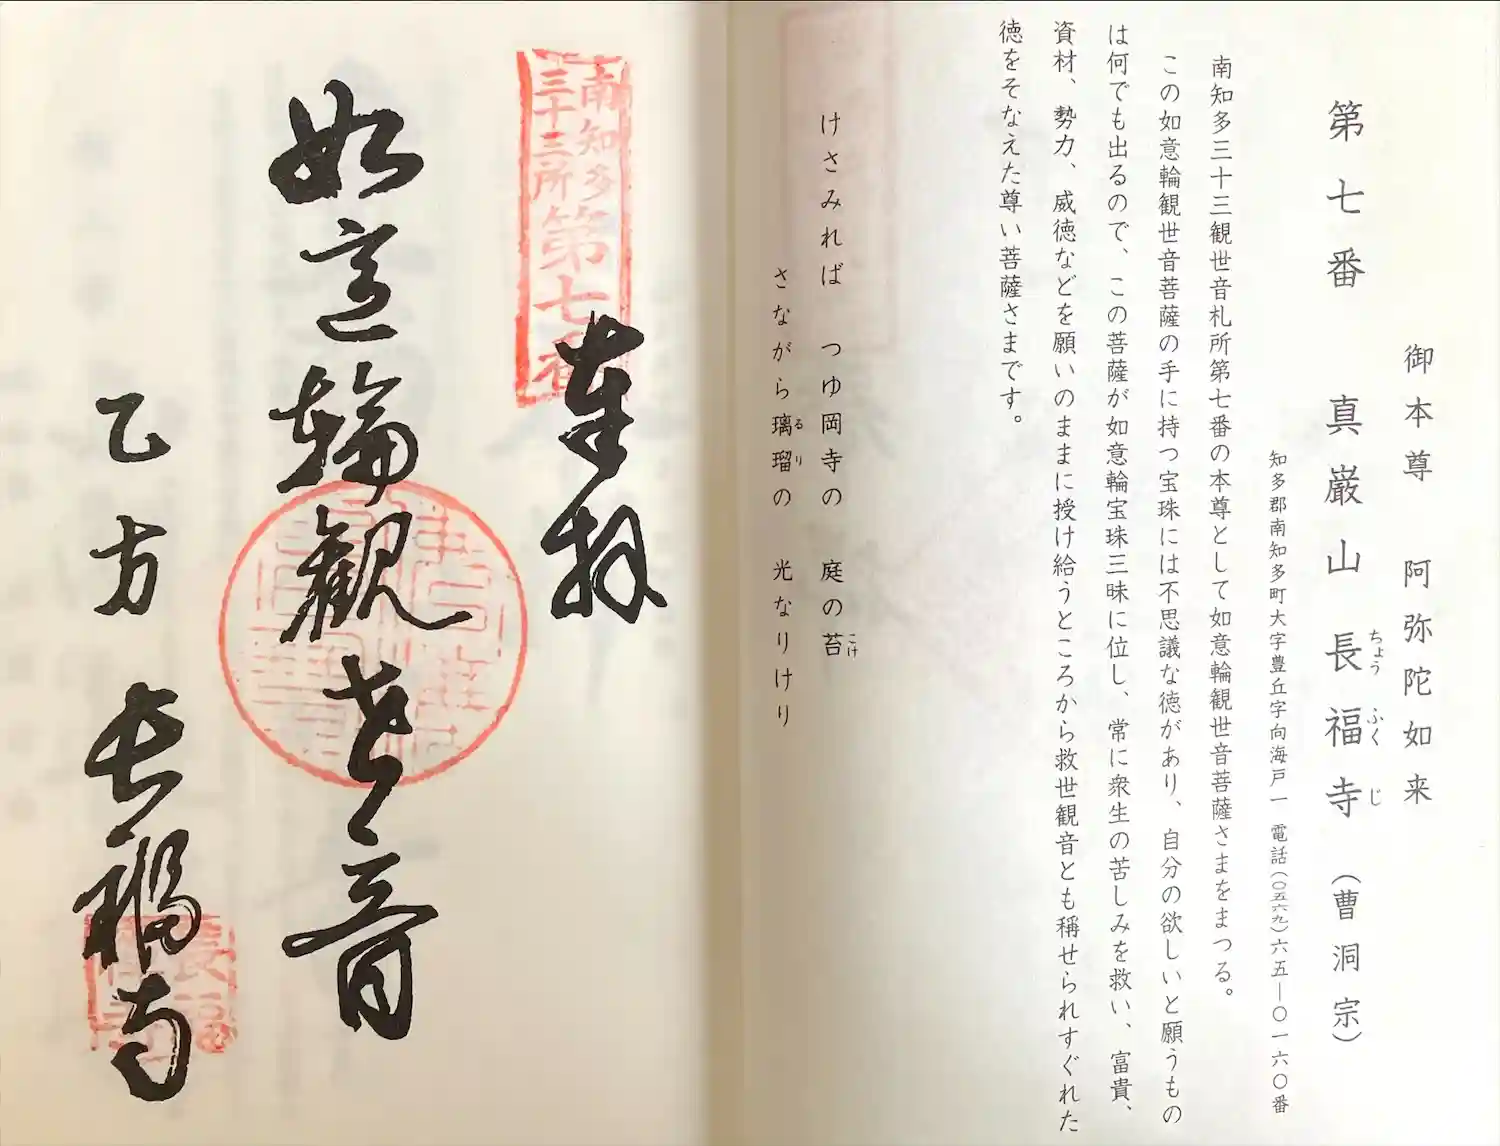 御本尊　阿弥陀如来
第七番　真巌山長福寺（曹洞宗）
ちょうふくじ
知多郡南知多町大字豊丘字向海戸一　電話（〇五六九）六五―〇一六〇番
南知多三十三観世音札所第七番の本尊として如意輪観世音菩薩さまをまつる。
この如意輪観世音菩薩の手に持つ宝珠には不思議な徳があり、自分の欲しいと願うもの
は何でも出るので、この菩薩が如意輪宝珠三昧に位し、常に衆生の苦しみを救い、富貴、
資材、勢力、威徳などを願いのままに授け給うところから救世観音とも稱せられすぐれた
徳をそなえた尊い菩薩さまです。
けさみれば　つゆ岡寺の　庭の苔
こけ
さながら璃瑠の　光なりけり
るり
南知多
三十三所
第七番
奉拝
如意輪観世音
乙方　長福寺